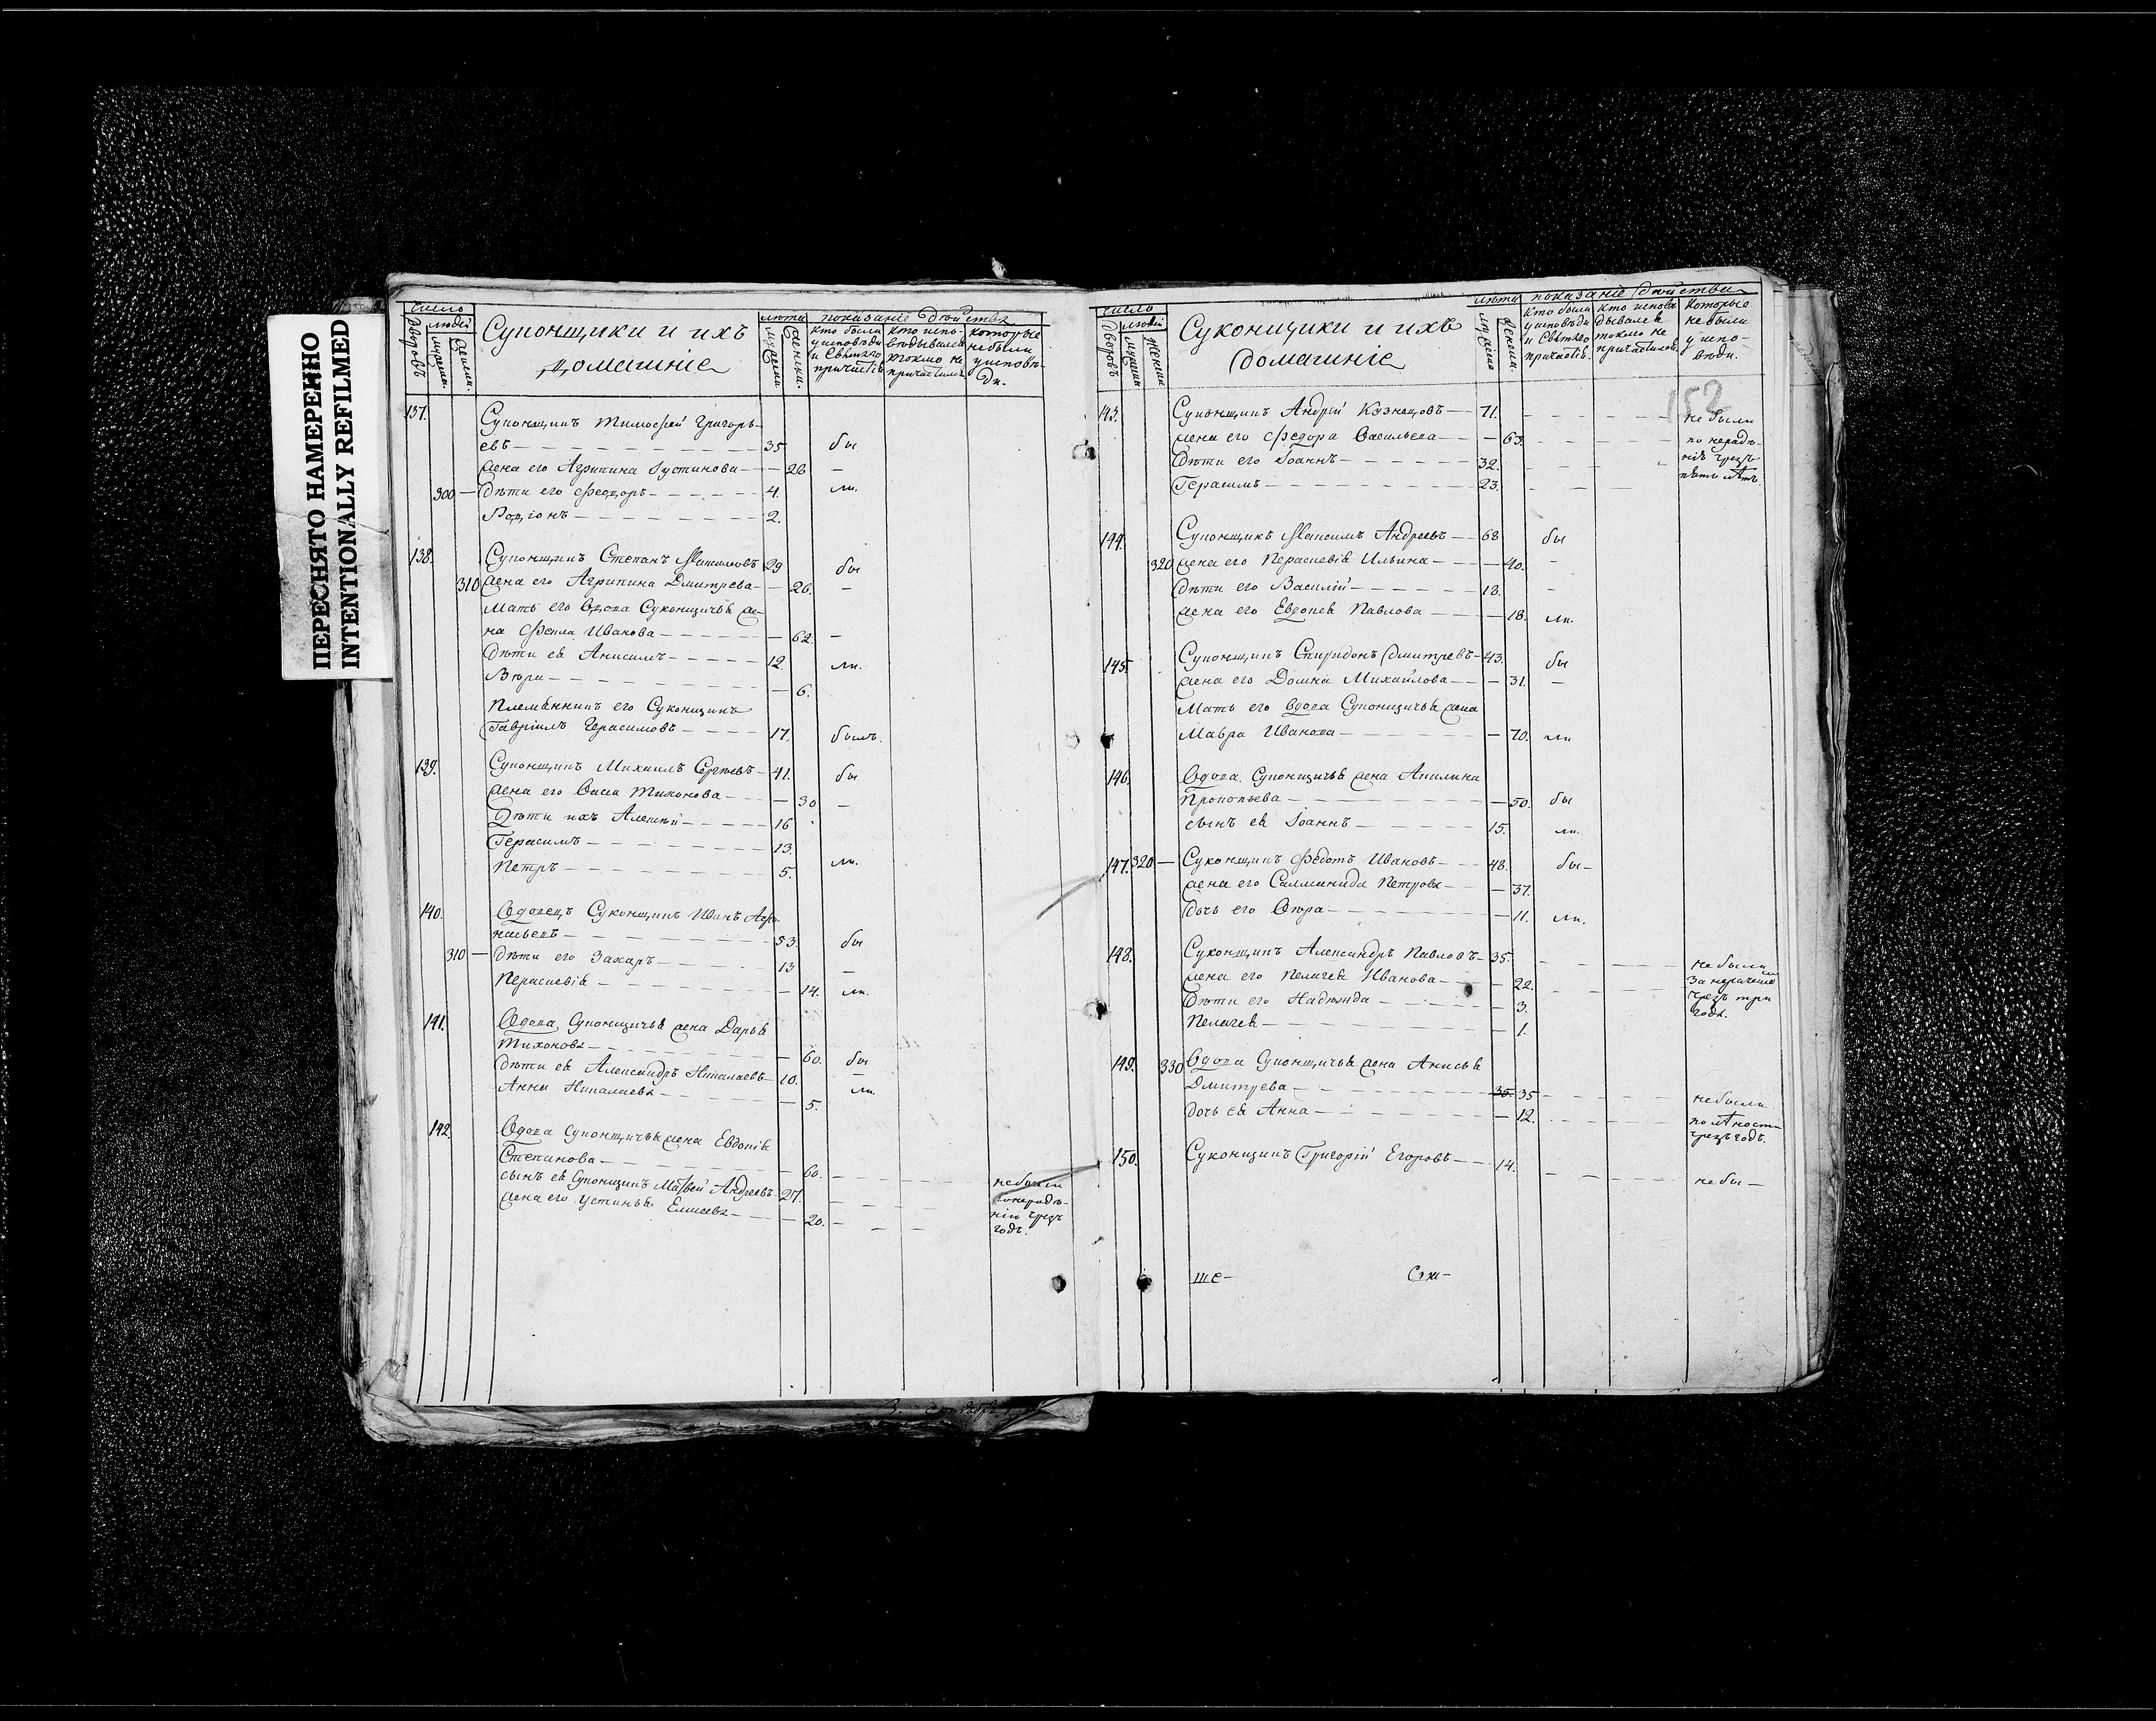 ПЕРЕСНЯТО НАМЕРЕННО
INTENTIONALLY REFILMED
число
дворовъ
людей
Суконщики и ихъ
домашніе
лѣта
показаніе дѣйства
кто были
у исповѣди
и Святаго
причастія
кто испо-
вѣдывался
токмо не
причастился
которые
небыли
у исповѣ-
ди.
137.
Суконщикъ Тимофей Григорь-
евъ 35 бы
жена его Агрипина Іустинова 28
300 Дѣти его Феодоръ 4. ли.
Родіонъ 2.
138. Суконщикъ Степанъ Максимовъ 29 бы
310 жена его Агрипина Дмитрева 26.
Мать его вдова Суконщичья же-
на Фекла Иванова 62
Дѣти ея Анисимъ 12 ли.
6.
Племянникъ его Суконщикъ
Гавріилъ Герасимовъ 17. былъ.
139. Суконщикъ Михаилъ Сергѣевъ 41. бы
жена его Васса Тихонова 30
Дѣти ихъ Алексѣй 16
Герасимъ 13.
Петръ 5. ли.
140. Вдовецъ Суконщикъ Иванъ Афо-
насьевъ 53. бы
310 Дѣти его Захаръ 13
Параскевія 14. ли.
141. Вдова Суконщичья жена Дарья
Тихонова 60. бы
Дѣти ея Александръ Николаевъ 10.
Анна Николаева 5. ли.
142. Вдова Суконщичья жена Евдокія
Степанова 60.
сынъ ея Суконщикъ Матвей Андреевъ 27. небыли
жена его Устинья Елисева 20. понерадѣ-
нію чрезъ
годъ.
число
дворовъ
людей
Суконщики и ихъ
домашніе
лѣта
показаніе дѣйства
кто были
у исповѣди
и Святаго
причастія.
кто испов
дывался
токмо не
причастился
Которые
небыли
у испо-
вѣди.
152
143. Суконщикъ Андрей Кузнецовъ 71. не были
жена его Федора Васильева 63. по нерадѣ-
Дѣти его Іоаннъ 32. нію чрезъ
Герасимъ 23. пять лѣтъ.
144. Суконщикъ Максимъ Андреевъ 68 бы
320 жена его Параскевія Ильина 40.
Дѣти его Василій 18.
жена его Евдокея Павлова 18. ли.
145. Суконщикъ Спиридонъ Дмитревъ 43. бы
жена его Домна Михайлова 31.
Мать его вдова Суконщичья жена
Мавра Иванова 70. ли
146. Вдова Суконщичья жена Акилина
Прокопьева 50. бы
сынъ ея Іоаннъ 15. ли.
147. 320 Суконщикъ Федотъ Ивановъ 48. бы
жена его Саламанида Петрова 37.
дочь его 11. ли.
148. Суконщикъ Александръ Павловъ 35. не были
жена его Пелагея Иванова 22. За
Дѣти его Надежда 3. чрезъ три
Пелагея 1. года.
149. 330 Вдова Суконщичья жена Анисья
Дмитрева 35. 35 небыли
дочь ея Анна 12.
чрезъ годъ.
150. Суконщикъ Григорій Егоровъ 14. не бы
ше-